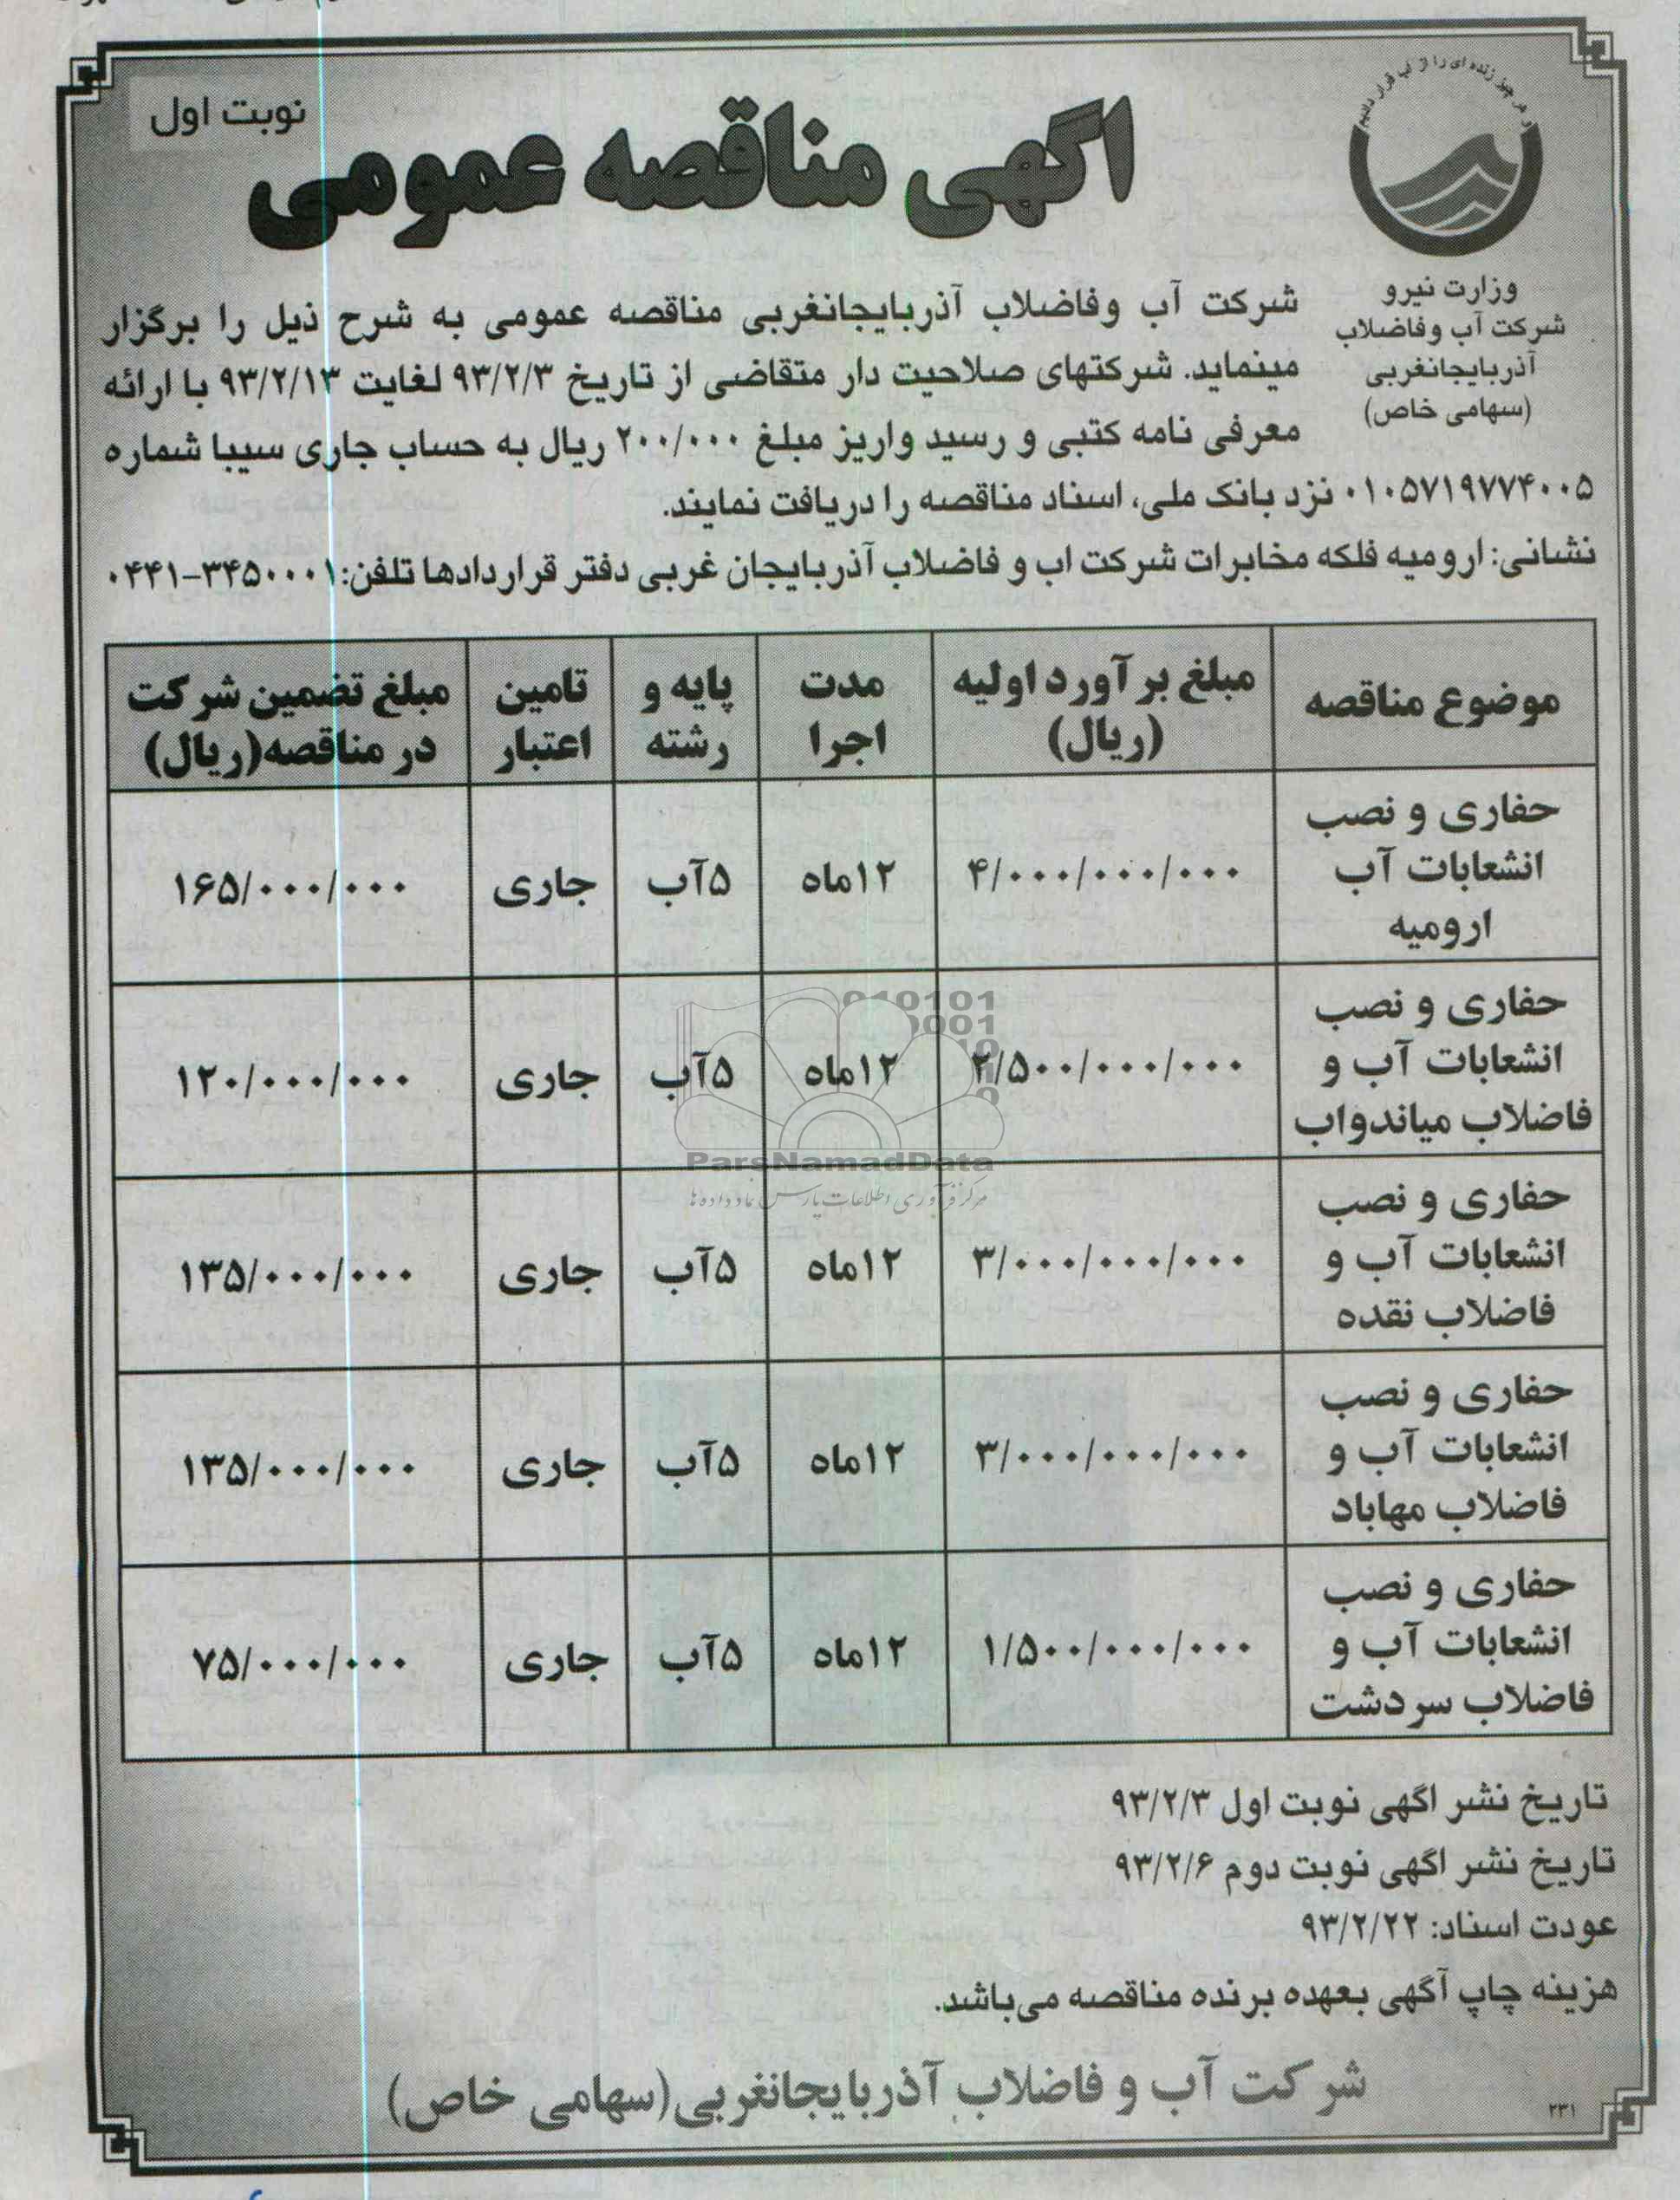 و هر چیز زنده ای را از آب قرار دادیم
نوبت اول
اگهی مناقصه عمومی
وزارت نیرو
شرکت آب وفاضلاب
آذربایجانغربی
(سهامی خاص)
شرکت آب وفاضلاب آذربایجانغربی مناقصه عمومی به شرح ذیل را برگزار
مینماید. شرکتهای صلاحیت دار متقاضی از تاریخ ۹۳/۲/۳ لغایت ۹۳/۲/۱۳ با ارائه
معرفی نامه کتبی و رسید واریز مبلغ ۲۰۰/۰۰۰ ریال به حساب جاری سیبا شماره
۰۱۰۵۷۱۹۷۷۴۰۰۵ نزد بانک ملی، اسناد مناقصه را دریافت نمایند.
نشانی: ارومیه فلکه مخابرات شرکت اب و فاضلاب آذربایجان غربی دفتر قراردادها تلفن: ۰۴۴۱-۳۴۵۰۰۰۱
موضوع مناقصه
مبلغ بر آورد اولیه
(ریال)
مدت
اجرا
پایه و
رشته
تامین
اعتبار
مبلغ تضمین شرکت
در مناقصه(ریال)
حفاری و نصب
انشعابات آب
ارومیه
۴/۰۰۰/۰۰۰/۰۰۰
۱۲ماه
۵آب
جاری
۱۶۵/۰۰۰/۰۰۰
حفاری و نصب
انشعابات آب و
فاضلاب میاندواب
۲/۵۰۰/۰۰۰/۰۰۰
۱۲ماه
۵آب
جاری
۱۲۰/۰۰۰/۰۰۰
حفاری و نصب
انشعابات آب و
فاضلاب نقده
۳/۰۰۰/۰۰۰/۰۰۰
۱۲ماه
۵آب
جاری
۱۳۵/۰۰۰/۰۰۰
حفاری و نصب
انشعابات آب و
فاضلاب مهاباد
۳/۰۰۰/۰۰۰/۰۰۰
۱۲ماه
۵آب
جاری
۱۳۵/۰۰۰/۰۰۰
حفاری و نصب
انشعابات آب و
فاضلاب سردشت
۱/۵۰۰/۰۰۰/۰۰۰
۱۲ماه
۵آب
جاری
۷۵/۰۰۰/۰۰۰
ParsNamadData
مرکز فرآوری اطلاعات پارس نماد داده ها
تاریخ نشر اگهی نوبت اول ۹۳/۲/۳
تاریخ نشر اگهی نوبت دوم ۹۳/۲/۶
عودت اسناد: ۹۳/۲/۲۲
هزینه چاپ آگهی بعهده برنده مناقصه می‌باشد.
شرکت آب و فاضلاب آذربایجانغربی(سهامی خاص)
۲۳۱